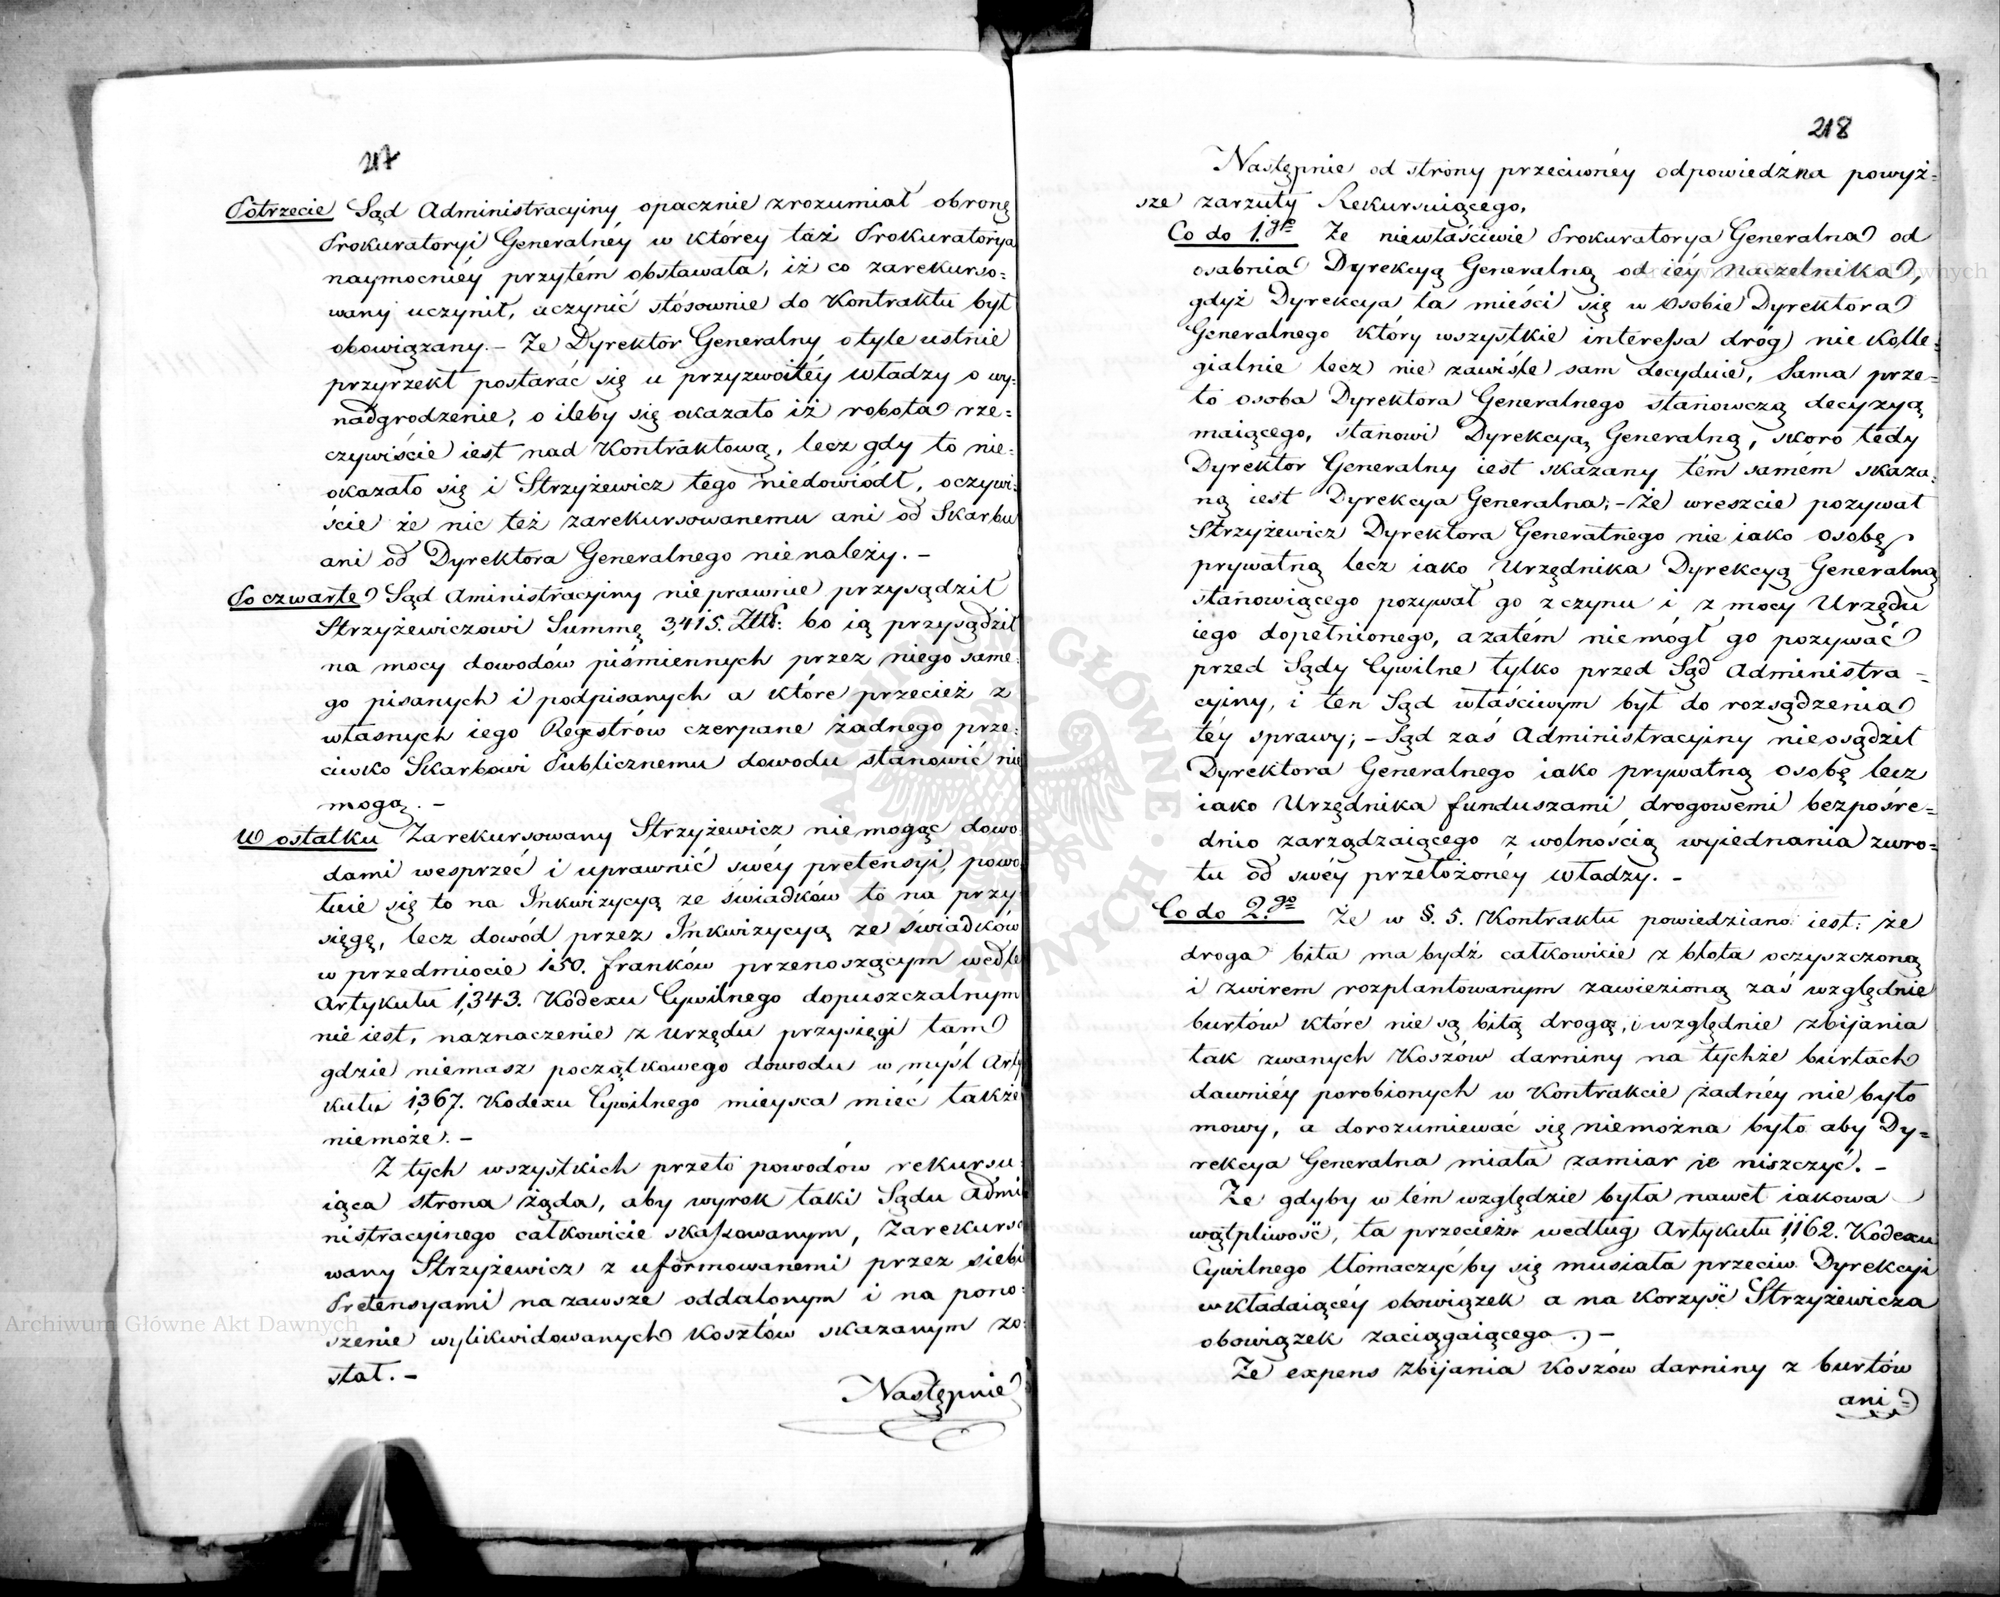 217
Potrzecie Sąd Administracyiny opacznie zrozumiał obronę
Prokuratoryi Generalnéy w którey taż Prokuratorya
naymocniéy przytém obstawała, iż co zarekurso=
wany uczynił, uczynić stósownie do Kontraktu był
obowiązany. – Że Dyrektor Generalny o tyle ustnie
przyrzekł postarać się u przyzwoitéy Władzy o wy=
nadgrodzenie, o ileby się okazało iż robota rze=
czywiście iest nad Kontraktową, lecz gdy to nie=
okazało się i Strzyżewicz tego niedowiódł, oczywi=
ście że nic też zarekursowanemu ani od Skarbu
ani od Dyrektora Generalnego nienależy. –
Po czwarte Sąd Aministracyiny nieprawnie przysądził
Strzyżewiczowi Summę 3,415. Złł: bo ią przysądził
na mocy dowodów piśmiennych przez niego same=
go pisanych i podpisanych a które przecież z
własnych iego Regestrów czerpane żadnego prze=
ciwko Skarbowi Publicznemu dowodu stanowić nie
mogą. –
W ostatku Zarekursowany Strzyżewicz niemogąc dowo=
dami wesprzeć i uprawnić swéy pretensyi, powo=
łuie się to na Inkwizycyą ze świadków to na przy=
sięgę, lecz dowód przez Inkwizycyą ze świadków
w przedmiocie 150. franków przenoszącym wedle
Artykułu 1,343. Kodexu Cywilnego dopuszczalnym
nie iest, naznaczenie z urzędu przysięgi tam
gdzie niemasz początkowego dowodu w myśl Arty=
kułu 1,367. Kodexu Cywilnego mieysca mieć także
niemoże. –
Z tych wszystkich przeto powodów rekursu=
iąca strona żąda, aby wyrok taki Sądu Admi=
nistracyinego całkowicie skassowanym, Zarekurso=
wany Strzyżewicz z uformowanemi przez siebie
Pretensyami nazawsze oddalonym i na pono=
szenie wylikwidowanych Kosztów skazanym zo=
stał. –
Następnie
218
Następnie od strony przeciwnéy odpowiedź na powyż=
sze zarzuty Rekursuiącego,
Co do 1.go Że niewłaściwie Prokuratorya Generalna od
osabnia Dyrekcyą Generalną od iéy naczelnika,
gdyż Dyrekcya ta mieści się w osobie Dyrektora
Generalnego który wszystkie interessa dróg nie Kolle=
gialnie lecz nie zawiśle sam decyduie, Sama prze=
to osoba Dyrektora Generalnego stanowczą decyzyą
maiącego, stanowi Dyrekcyą Generalną, skoro tedy
Dyrektor Generalny iest skazany tém samém skaza=
ną iest Dyrekcya Generalna; – Że wreszcie pozywał
Strzyżewicz Dyrektora Generalnego nie iako osobę
prywatną lecz iako Urzędnika Dyrekcyą Generalną
stanowiącego pozywał go z czynu i z mocy Urzędu
iego dopełnionego, a zatém niemógł go pozywać
przed Sądy Cywilne tylko przed Sąd Administra=
cyiny, i ten Sąd właściwym był do rozsądzenia
téy sprawy; – Sąd zaś Administracyiny nieosądził
Dyrektora Generalnego iako prywatną osobę lecz
iako Urzędnika funduszami drogowemi bezpośre=
dnio zarządzaiącego z wolnością wyiednania zwro=
tu od swéy przełożonéy Władzy. –
Co do 2.go Że w §. 5. Kontraktu powiedziano iest: że
droga bita ma bydź całkowicie z błota oczyszczoną
i zwirem rozplantowanym zawiezioną zaś względnie
burtów które nie są bitą drogą, i względnie zbijania
tak zwanych Koszów darniny na tychże burtach
dawniéy porobionych w Kontrakcie żadnéy nie było
mowy, a dorozumiewać się niemożna było aby Dy=
rekcya Generalna miała zamiar ie niszczyć. –
Że gdyby w tém względzie była nawet iakowa
wątpliwość, ta przecież według Artykułu 1,162. Kodexu
Cywilnego tłomaczyćby się musiała przeciw Dyrekcyi
wkładaiącéy obowiązek a na Korzyść Strzyżewicza
obowiązek zaciągaiącego. –
Że expens zbijania Koszów darniny z burtów
ani
Archiwum Główne Akt Dawnych